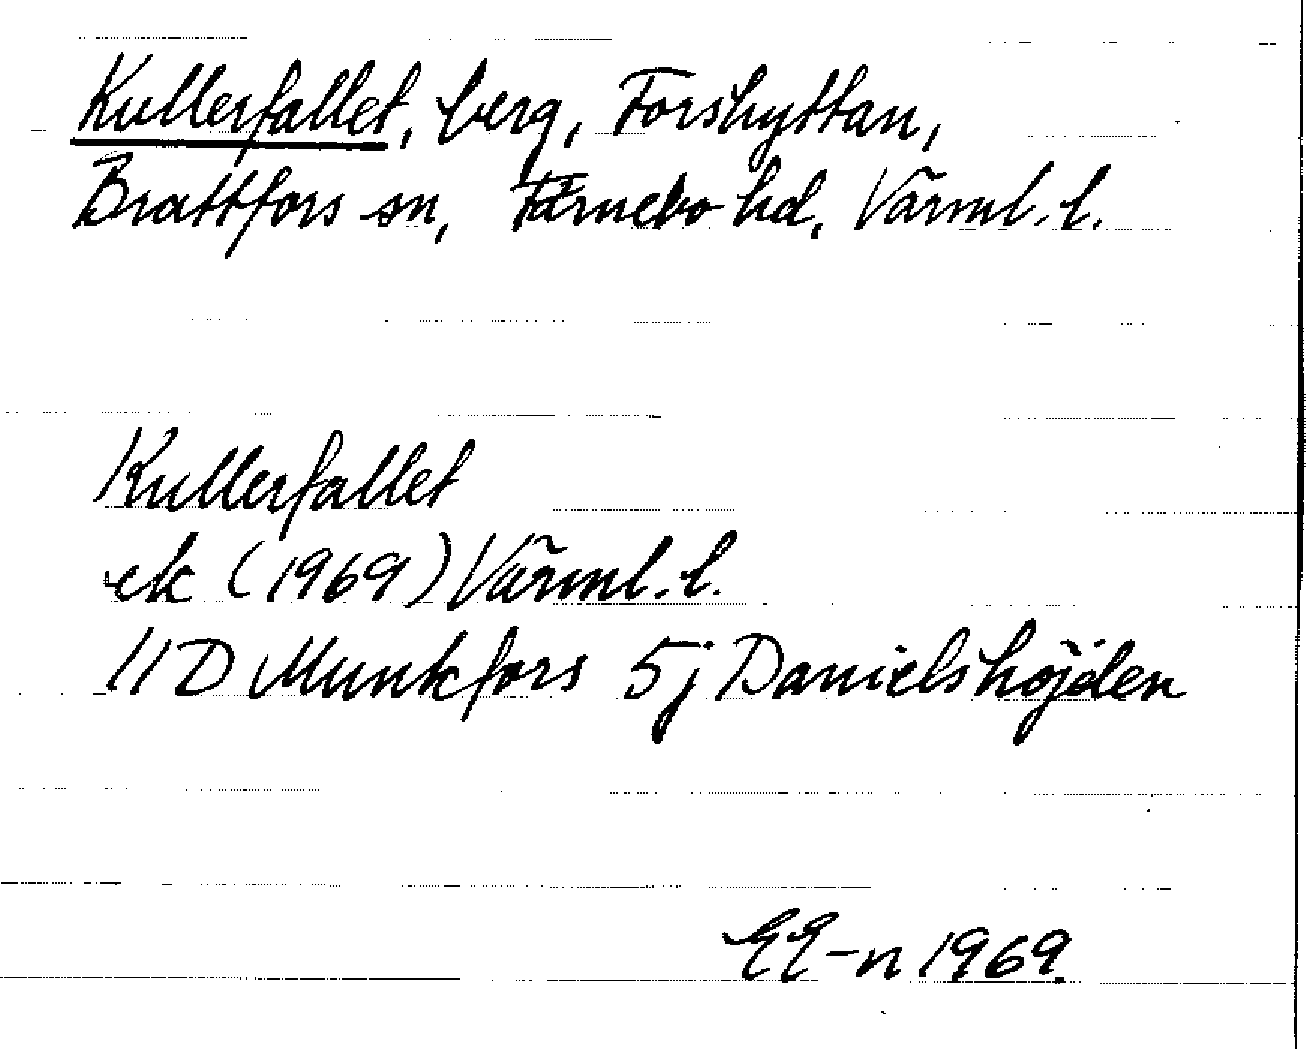 Kullerfallet, berg, Forshyttan,
Brattfors sn, Färnebo hd, Värml. l.
Kullerfallet
ek (1969) Värml. l.
11D Munkfors 5j Danielshöjden
EE-n 1969.